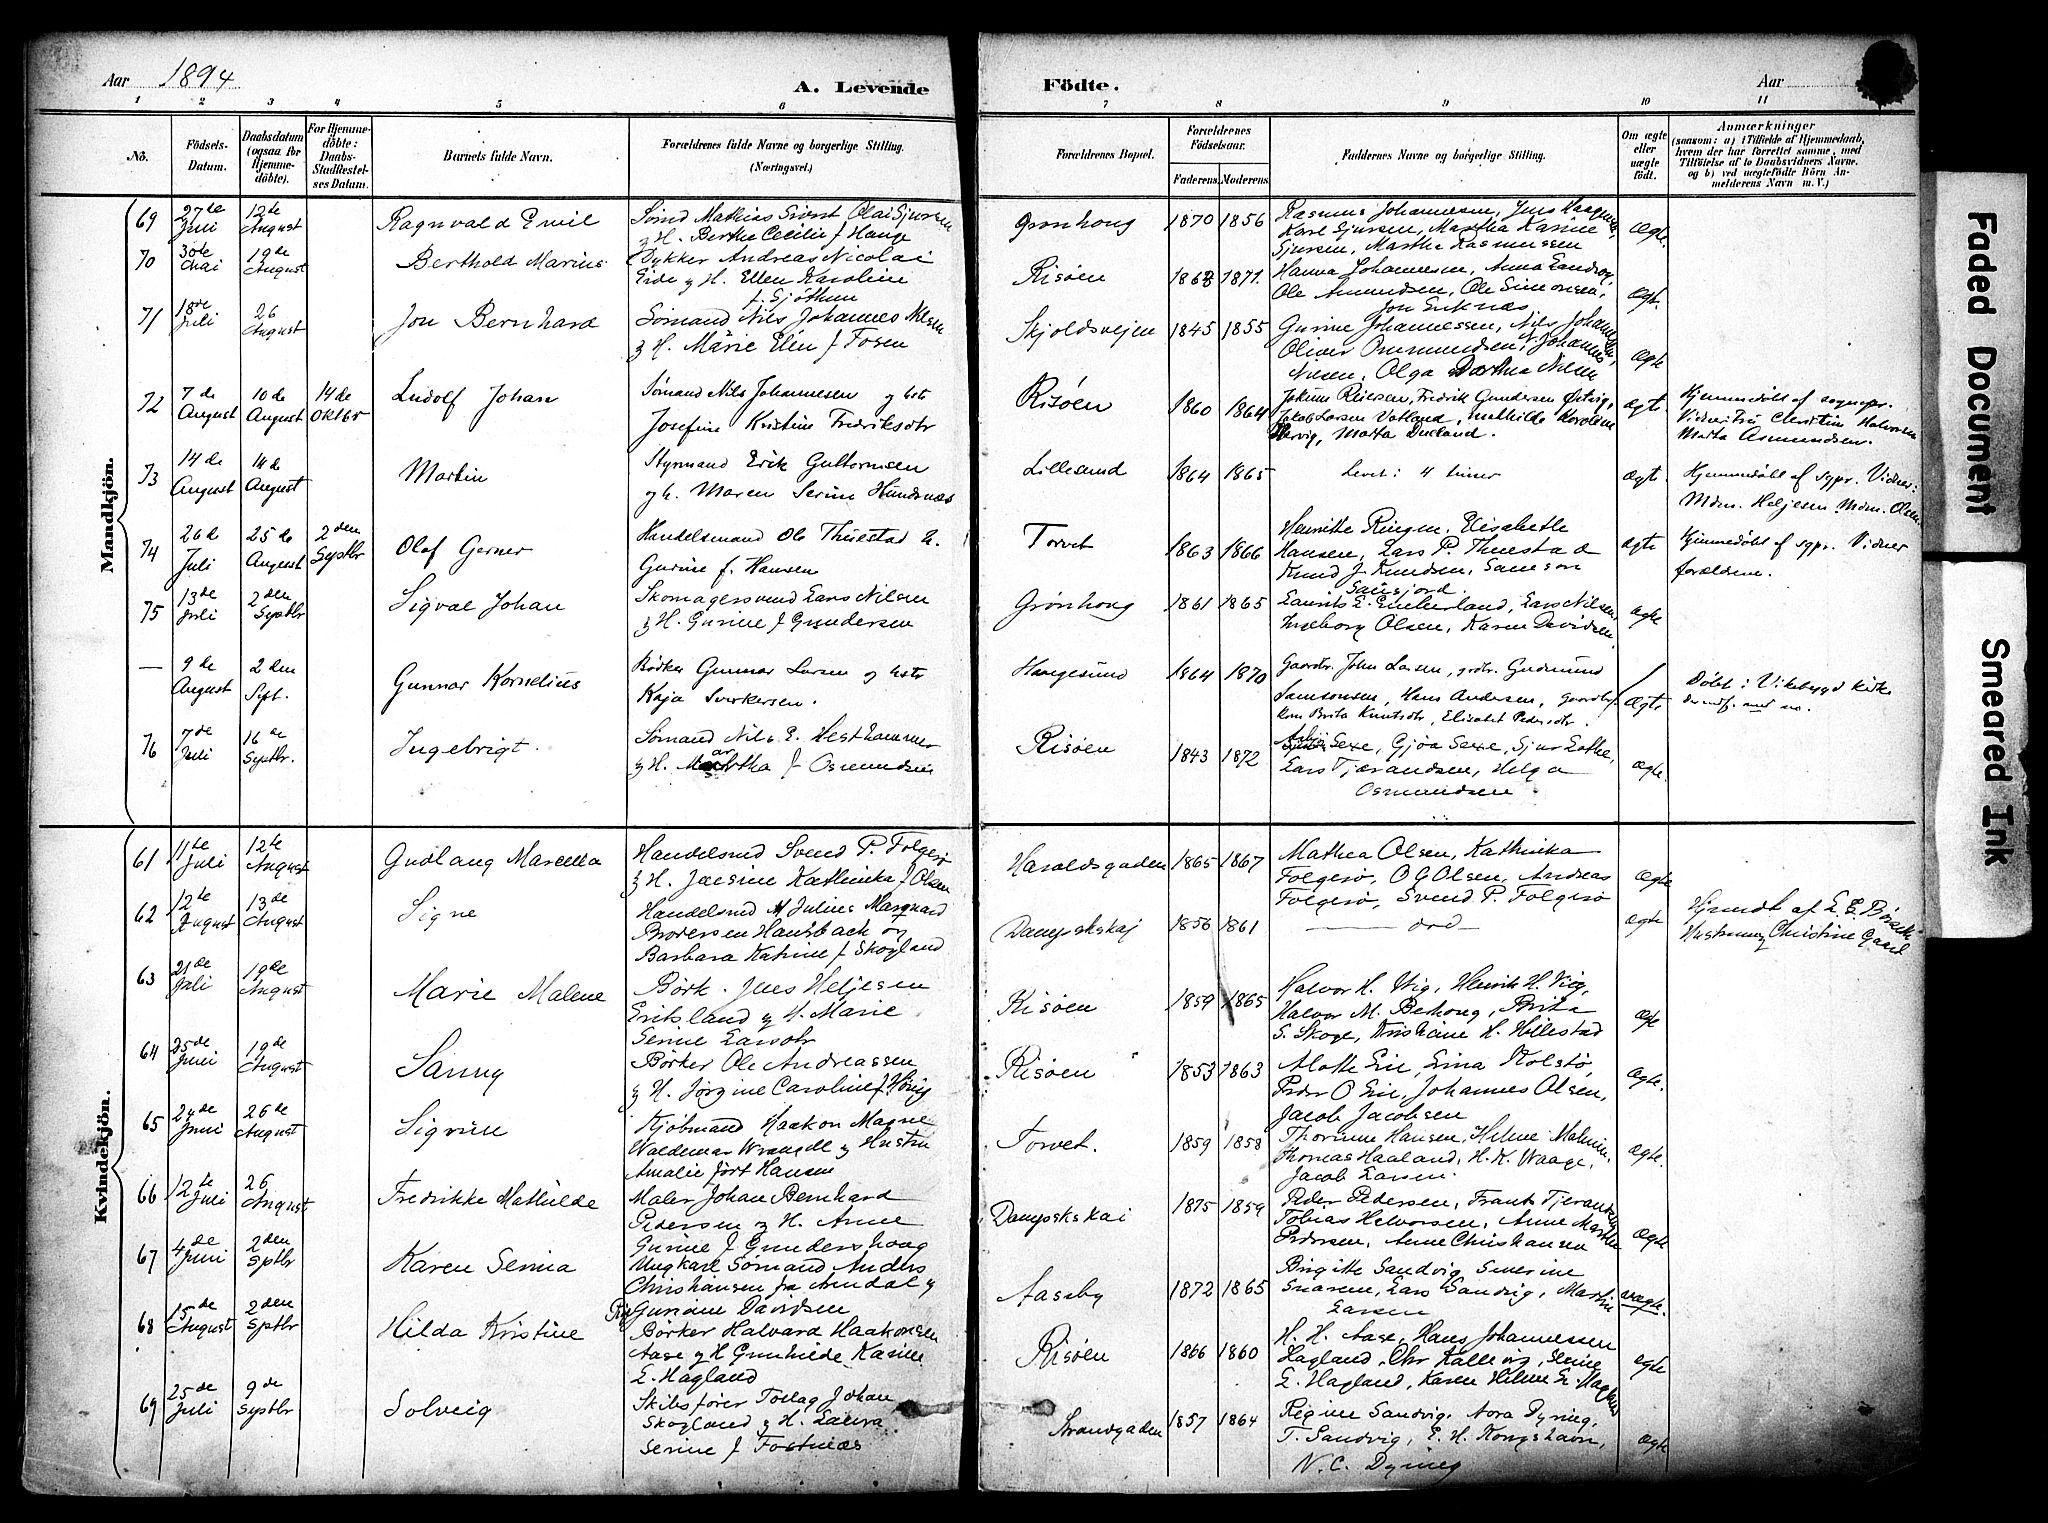 Aar 1894
A. Levende
Födte.
Aar
1 2 3 4 5 6 7 8 9 10 11
No.
Födsels-Datum.
Daabsdatum (ogsaa for Hjemme-döbte).
For Hjemme-döbte: Daabs-Stadfæstel-ses Datum.
Barnets fulde Navn.
Forældrenes fulde Navne og borgerlige Stilling. (Næringsvei.)
Forældrenes Bopæl.
Forældrenes Födselsaar.
Faderens. Moderens.
Faddernes Navne og borgerlige Stilling.
Om ægte eller uægte födt.
Anmærkninger
(saasom: a) i Tilfælde af Hjemmedaab, hvem der har forrettet samme, med Tilföielse af to Daabsvidners Navne. og b) ved uægtefödte Börn An-melderens Navn m. V.)
Mandkjön.
69 27de Juli 12te August Ragnvald Emil
Mathias Sivert Olai Sjursen
y H. Bertha Cecilie f Hauge
Grønhoug 1870 1856
Rasmus Johannesen, Jens
Karl Sjursen, Martha Karine
Sjursen, Martha Rasmussen
Ægte.
70 30te Mai 19de August Berthold Marius
Dykker Andreas Nicolai
Eide y H. Ellen Karoline
f. Sjøthun
Risøen 1868 1871.
Hanna Johannesen, Anna Sandvog
Ole Amundsen, Ole Simonsen,
Jon Eriknæs
Ægt.
71 18de Juli 26 August Jon Bernhard
Sømand Nils Johannes Nilsen
y H. Marie Elen f Fosen
Skjoldsvejen 1845 1855
Gurine Johannessen, Nils
Oliver Ommundsen, N. Johannes
Nilsen, Olga Dorthea Nilsen
ægte
72 7de August 10de August 14de Oktbr Ludolf Johan
Sømand Nils Johannesen og hst
Josefine Kristine Fredriksdtr
Risøen 1860 1864
Fredrik Gundersen
Jakob Larsen Vatland, Mathilde
Marta
ægte
Hjemmedøbt af sognepr.
Christine Halvorsen
Marta Asmundsen.
73 14de August 14de August Martin
Styrmand Erik Guttormsen
og h. Maren Serine Hundsnæs
Lillesund 1864 1865
Levet i 4 timer
ægt.
Hjemmedøbt af sgpr. Vidner:
Mdm. Heljesen. Mdm. Olsen.
74 26de Juli 25de August 2den Septbr Olaf Gerner
Handelsmand Ole Thuestad h.
Gurine f. Hansen
Torvet 1863 1866
Henrikke Ringen. Elisabeth
Hansen, Lars P. Thuestad
Knud J. Knudsen, Samson
Saltsjord.
ægte
Hjemmedøbt af sgpr. Vidner
forældrene.
75 13de Juli 2den Septbr Sigval Johan
Skomagersvend Lars Nilsen
y H. Gurine f Gundersen
Grønhoug 1861 1865
Laurits E. Emberland, Lars Nilsen
Ingeborg Olsen, Karen Davidsen
ægte
— 9de August 2den Sept. Gunnar Kornelius
Bødker Gunnar Larsen og hst
Kaja Sverkersen.
Haugesund 1864 1870
Gaardbr. John Larsen, Gudmund
Samsonsen, Hans Andersen,
Kone Brita Knutsdtr, Elisabet Pedersdtr.
Ægte
Døbt i Vikebygd kirke
76 7de Juli 16de Septbr. Ingebrigt.
Sømand Nils E. Hesthammer
y H. Martha f Osmundsen
Risøen 1843 1872
Sexe, Gjøa Sexe, Sjur Lothe,
Lars Tjærandsen, Helga
Osmundsen
ægte.
Kvindekjön.
61 11te Juli 12te August Gudlaug Marcella
Handelsmd Svend P. Folgerø
y H. Jacsine Kathinka f Olsen
Haraldsgaden 1865 1867
Mathea Olsen, Kathinka
Folgerø, O G Olsen, Andreas
Folgerø, Svend P. Folgerø
Ægte
62 12te August 13de August Signe
Handelsmd M Julius Marquard
Brodersen Hansbach og
Barbara Katrine f Skogland
Dampskskaj 1856 1861
død
Ægte
Hjemdt af E. E.
Hustru og Christine Gaard
63 21de Juli 19de August Marie Malene
Børk. Jens Heljesen
Eriksland y H. Marie
Serine Larsdtr
Risøen 1859 1865
Halvor H. Vig, Henrik H. Vig,
Halvor M. Behoug, Brita
S. Skoge, Kristiane H. Hillestad
Ægte
64 25de Juni 19de August Sanny
Børker Ole Andreassen
y H. Jørgine Caroline f Høvig
Risøen 1853 1863
Alotte Eie, Lina Kolstø,
Peder O Eie, Johannes Olsen,
Jacob Jacobsen
Ægte.
65 24de Juni 26de August Sigrun
Kjøbmand Haakon Magne
Waldemar Wrangel y Hustru
Amalie født Hansen
Torvet. 1859 1858
Thorine Hansen, Helene
Thomas Haaland, H. K. Waage,
Jacob Larsen
Ægte.
66 12te Juli 26 August Fredrikke Mathilde
Maler Johan Bernhard
Pedersen y H. Anne
Gurine f Gundershoug
Dampskskai 1875 1859
Peder Pedersen, Frants
Tobias Helvorsen, Anne Marthe
Pedersen, Anne Christiansen
Ægte
67 4de Juni 2den Sptbr Karen Semia
Ungkarl Sømand Anders
Christiansen fra Arendal y
Pig Guriane Davidsen
Aasaby 1872 1865
Birgitte Sandvig, Severine
Snaresen, Lars Sandvig, Martin
Larsen
uægte.
68 15de August 2den Sptbr Hilda Kristine
Børker Halvard Haakonsen
Aase y H Gunhilde Karine
E. Hagland
Risøen 1866 1860
H. H. Aase, Hans Johannessen
Hagland, Chr Kallevig, Serine
E. Hagland, Karen Helene E.
ægte
69 25de Juli 9de Septbr Solveig
Skibsfører Tollag Johan
Skogland y H. Laura
Serine f Fostnæs
Strandgaden 1857 1864
Regine Sandvig, Nora Dyring,
T. Sandvig, E. H. Kongshavn,
N. C. Dyring
ægte
Faded Document
Smeared Ink